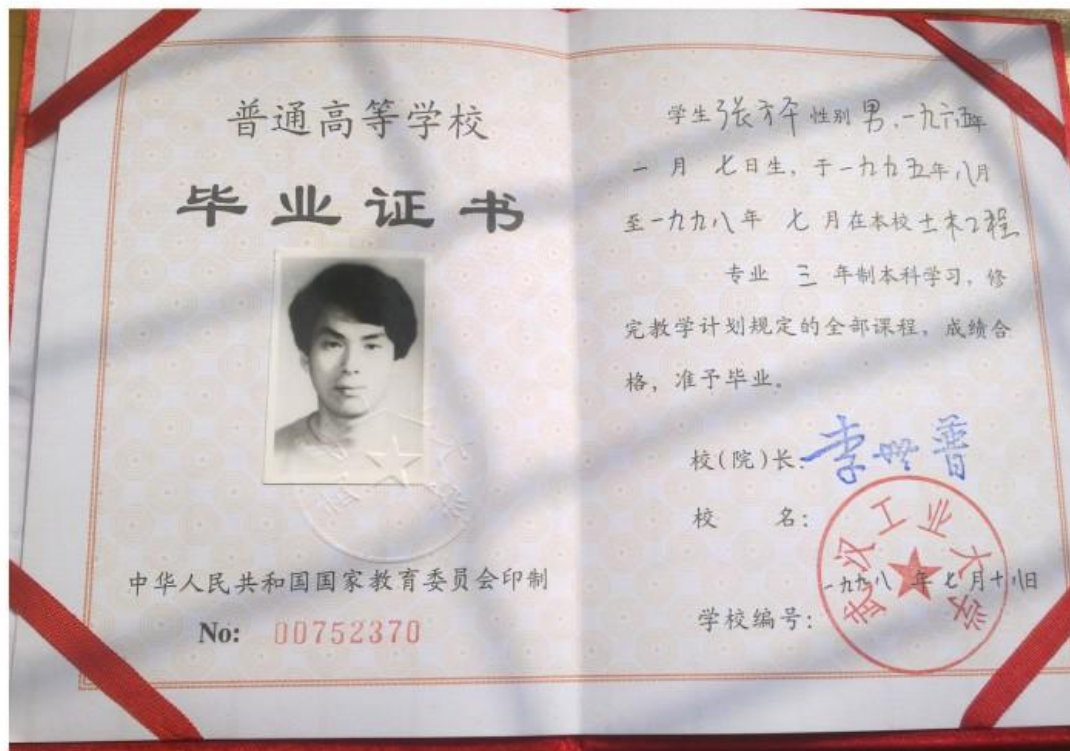 普通高等学校
毕业证书
中华人民共和国国家教育委员会印制
No: 00752370
学生张方华性别男,一九六五年
一月七日生,于一九九五年八月
至一九九八年七月在本校土木工程
专业三年制本科学习,修
完教学计划规定的全部课程,成绩合
格,准予毕业。
校(院)长:李世普
校名:
武汉工业大学
一九九八年七月十八日
学校编号: